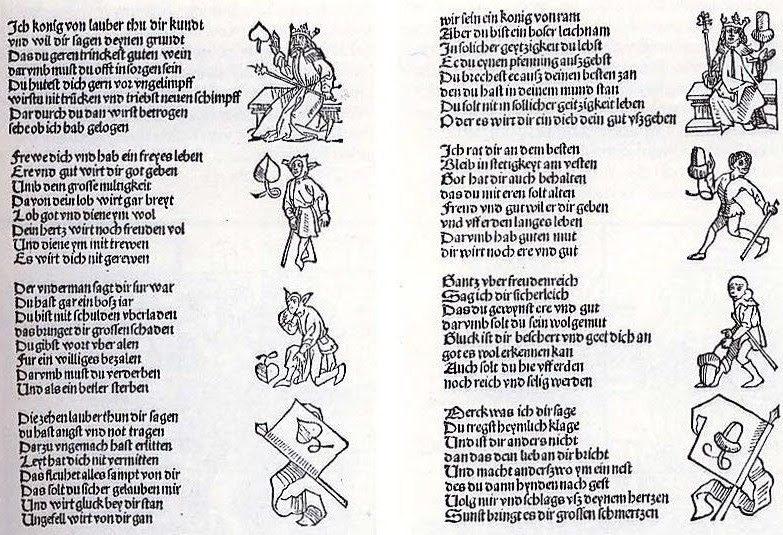 Ich konig von lauber thu dir kundt
vnd wil dir sagen deynen grundt
Das du geren trinckest guten wein
darvmb must du offt in sorgen sein
Du hutest dich gern vor vngelimpff
wirstu nit trūcken vnd triebst neuen schimpff
Dar durch du dan wirst betrogen
sehe ob ich hab gelogen
Frewe dich vnd hab ein freyes leben
Ere vnd gut wirt dir got geben
Umb dein grosse miltigkeit
Davon dein lob wirt gar breyt
Lob got vnd diene ym wol
Dein hertz wirt noch freuden vol
Und diene ym mit trewen
Es wirt dich nit gerewen
Der vnderman sagt dir fur war
Du hast gar ein bosz iar
Du bist mit schulden vberladen
das bringet dir grossen schaden
Du gibst wort vber alen
Fur ein williges bezalen
Darvmb must du verderben
Und als ein betler sterben
Die zehen lauber thun dir sagen
du hast angst vnd not tragen
Darzu vngemach hast erlitten
Leyt hat dich nit vermitten
Das fleuhet alles sampt von dir
Das solt du sicher gelauben mir
Und wirt gluck bey dir stan
Ungefell wirt von dir gan
wir sein ein konig von ram
Aber du bist ein boser leichnam
In solicher geytzigkeit du lebst
Ee du eynen pfenning auszgebst
Du brechest ee ausz deinen besten zan
den du hast in deinem mund stan
Du solt nit in sollicher geitzigkeit leben
Oder es wirt dir ein dieb dein gut vszgeben
Ich rat dir an dem besten
Bleib in stetigkeyt am vesten
Got hat dir auch behalten
das du mit eren solt alten
Freud vnd gut wil er dir geben
vnd vff erden langes leben
Darvmb hab guten mut
dir wirt noch ere vnd gut
Gantz vber freudenreich
Sag ich dir sicherleich
Das du gewynst ere vnd gut
darvmb solt du sein wolgemut
Gluck ist dir beschert vnd geet dich an
got es wol erkennen kan
Auch solt du hie vff erden
noch reich vnd selig werden
Merck was ich dir sage
Du tregst heymlich klage
Und ist dir anders nicht
dan das dein lieb an dir bricht
Und macht anderszwo ym ein nest
des du dann hynden nach gest
Uolg mir vnd schlags vsz deynem hertzen
Sunst bringt es dir grossen schmertzen